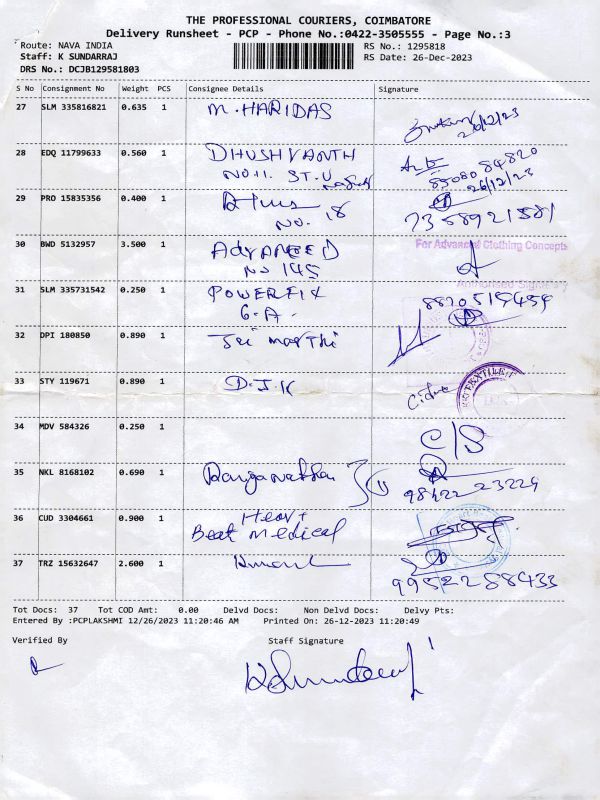 THE PROFESSIONAL COURIERS, COIMBATORE
Delivery Runsheet - PCP - Phone No.:0422-3505555 - Page No.:3
Route: NAVA INDIA RS No.: 1295818
Staff: K SUNDARRAJ RS Date: 26-Dec-2023
DRS No.: DCJB129581803
S No Consignment No Weight PCS Consignee Details Signature
27 SLM 335816821 0.635 1 M. HARIDAS
26/12/23
28 EDQ 11799633 0.560 1 DHUSHYANTH 85080 84820
NO 11. ST. U 26/12/23
29 PRO 15835356 0.400 1
NO. 18 7358921581
30 BWD 5132957 3.500 1 ADVANCED For Advanced Clothing Concepts
NO 145
Authorised Signatory
31 SLM 335731542 0.250 1 POWERFIX 8870515459
6.A.
32 DPI 180850 0.890 1 Sri
33 STY 119671 0.890 1 D.J.K TEXTILE
34 MDV 584326 0.250 1 C/S
35 NKL 8168102 0.690 1 Ranganathan 98422 23229
36 CUD 3304661 0.900 1 Heart
Beat Medical
37 TRZ 15632647 2.600 1
99522 88433
Tot Docs: 37 Tot COD Amt: 0.00 Delvd Docs: Non Delvd Docs: Delvy Pts:
Entered By :PCPLAKSHMI 12/26/2023 11:20:46 AM Printed On: 26-12-2023 11:20:49
Verified By Staff Signature